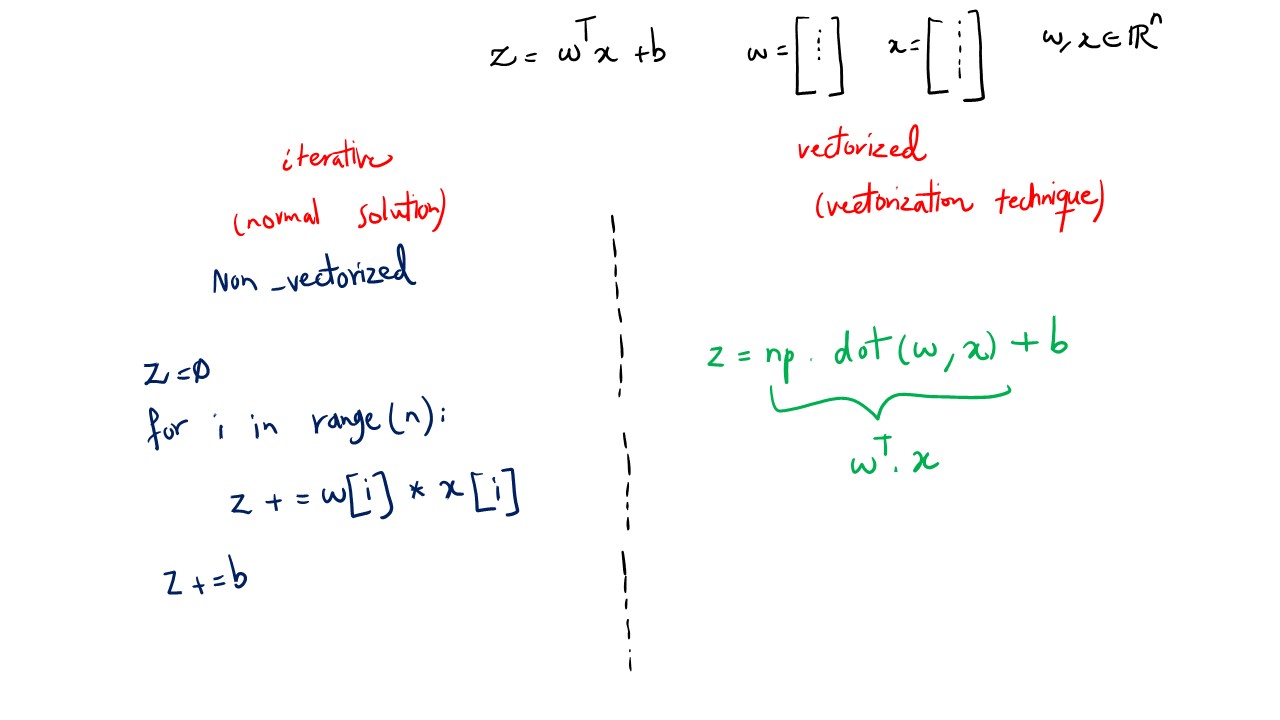 z = wᵀx + b   w = [⋮]   x = [⋮]   w, x ∈ ℝⁿ
iterative
(normal solution)
Non-vectorized
z = 0
for i in range(n):
z += w[i] * x[i]
z += b
vectorized
(vectorization technique)
z = np.dot(w, x) + b
wᵀ. x